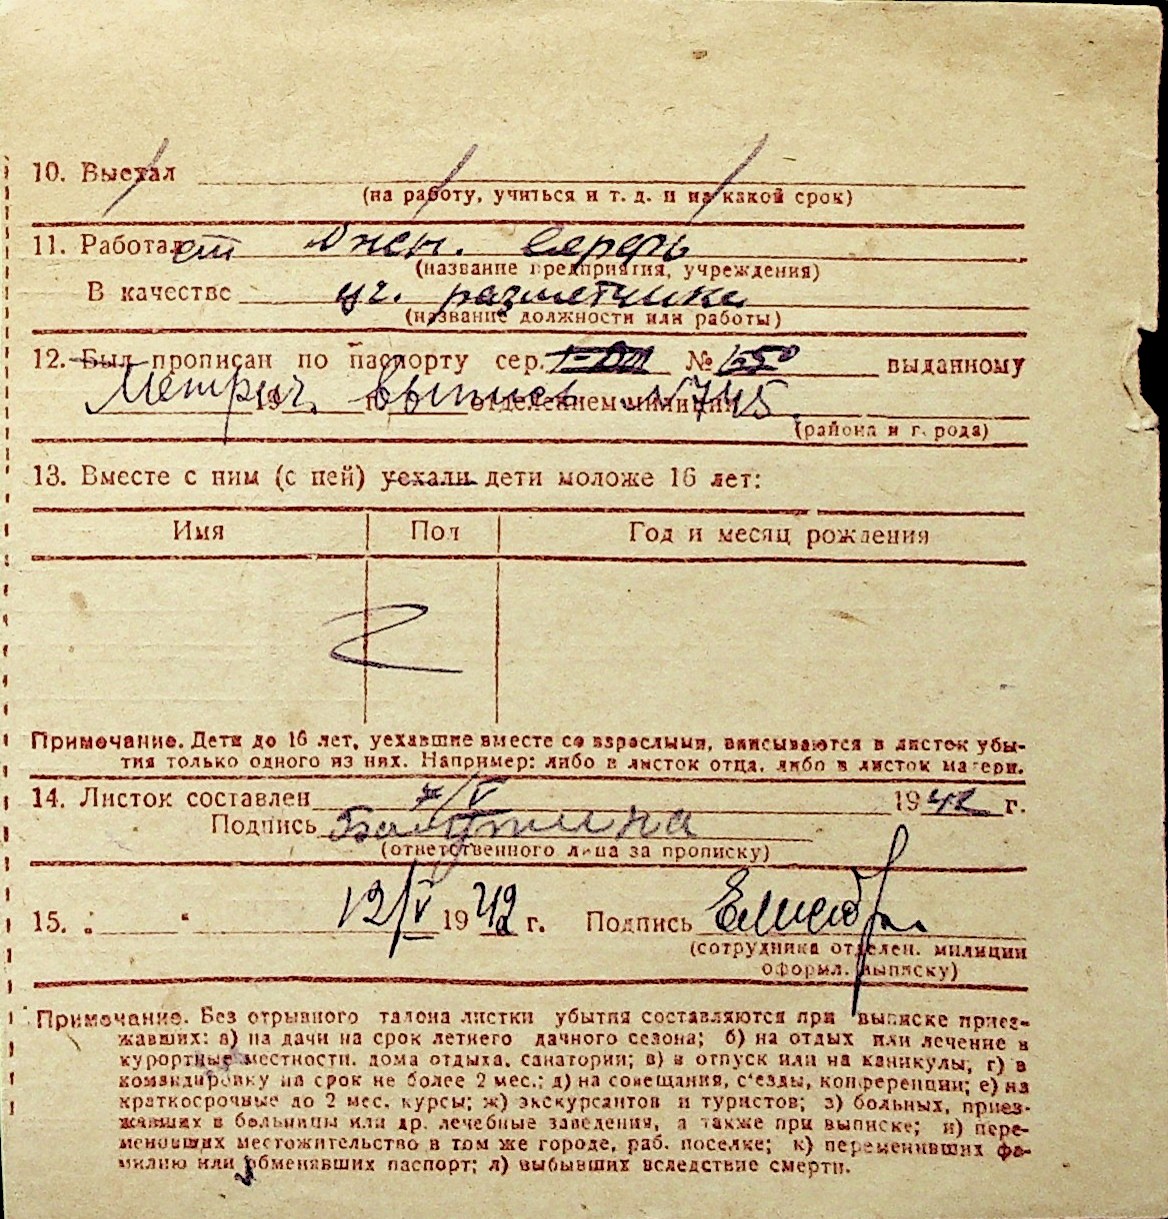 10. Выехал
(на работу, учиться и т. д. и на какой срок)
11. Работал
(название предприятия, учреждения)
В качестве уч. разметчика
(название должности или работы)
12. Был прописан по паспорту сер. № выданному
Метрич. выпись №745.
19 г. отделением милиции
(района и города)
13. Вместе с ним (с ней) уехали дети моложе 16 лет:
Имя Пол Год и месяц рождения
Примечание. Дети до 16 лет, уехавшие вместе со взрослыми, вписываются в листок убы-
тия только одного из них. Например: либо в листок отца, либо в листок матери.
14. Листок составлен /V 1942 г.
Подпись
(ответственного лица за прописку)
15. „ “ 12/V 1942 г. Подпись
(сотрудника отделен. милиции
оформл. выписку)
Примечание. Без отрывного талона листки убытия составляются при выписке приез-
жавших: а) на дачи на срок летнего дачного сезона; б) на отдых или лечение в
курортные местности, дома отдыха, санатории; в) в отпуск или на каникулы; г) в
командировку на срок не более 2 мес.; д) на совещания, с'езды, конференции; е) на
краткосрочные до 2 мес. курсы; ж) экскурсантов и туристов; з) больных, приез-
жавших в больницы или др. лечебные заведения, а также при выписке; и) пере-
менивших местожительство в том же городе, раб. поселке; к) переменивших фа-
милию или обменявших паспорт; л) выбывших вследствие смерти.